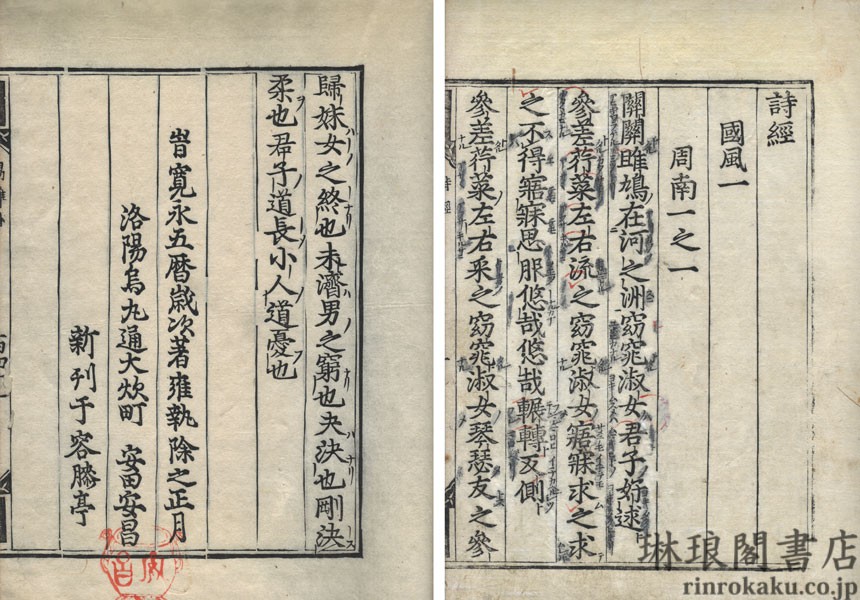 詩經
國風一
周南一之一
關關雎鳩在河之洲窈窕淑女君子好逑
參差荇菜左右流之窈窕淑女寤寐求之求
之不得寤寐思服悠哉悠哉輾轉反側
參差荇菜左右采之窈窕淑女琴瑟友之參
詩經
歸妹女之終也未濟男之窮也夬決也剛決
柔也君子道長小人道憂也
旹寛永五暦歳次著雍執除之正月
洛陽烏丸通大炊町 安田安昌
新刊于容膝亭
琳琅閣書店
rinrokaku.co.jp